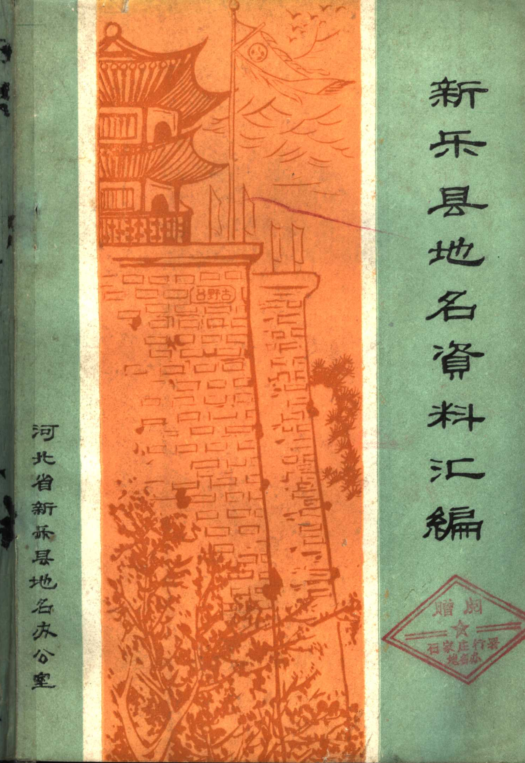 新乐县地名資料汇編
河北省新乐县地名办公室
古野台
贈閱
石家庄行署
地名办